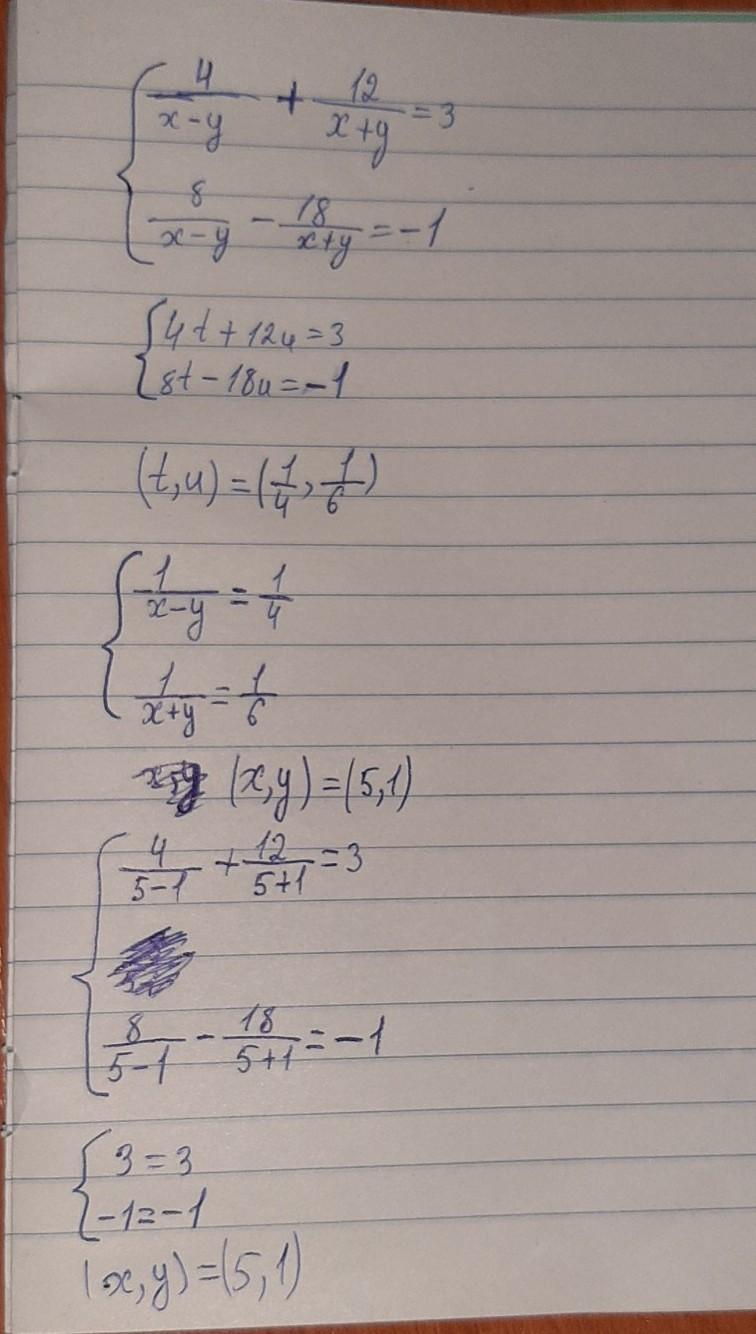 4/(x-y) + 12/(x+y) = 3
8/(x-y) - 18/(x+y) = -1
4t + 12u = 3
8t - 18u = -1
(t,u) = (1/4, 1/6)
1/(x-y) = 1/4
1/(x+y) = 1/6
(x,y) = (5,1)
4/(5-1) + 12/(5+1) = 3
8/(5-1) - 18/(5+1) = -1
3 = 3
-1 = -1
(x,y) = (5,1)